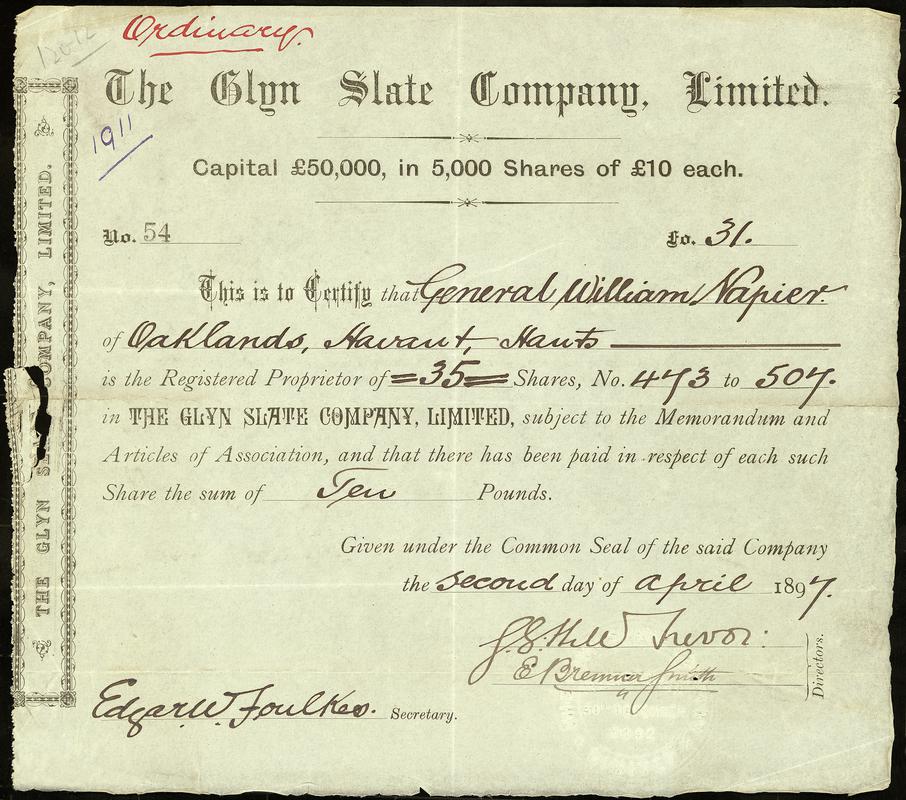 Ordinary.
The Glyn Slate Company, Limited.
1911
Capital £50,000, in 5,000 Shares of £10 each.
No. 54 Fo. 31.
This is to Certify that General William Napier.
of Oaklands, Havant, Hants
is the Registered Proprietor of =35= Shares, No. 473 to 507.
in THE GLYN SLATE COMPANY, LIMITED, subject to the Memorandum and
Articles of Association, and that there has been paid in respect of each such
Share the sum of Ten Pounds.
Given under the Common Seal of the said Company
the second day of April 1897.
Hill Trevor.
E Bremner Smith
Directors.
Edgar W. Foulkes. Secretary.
THE GLYN SLATE COMPANY, LIMITED.